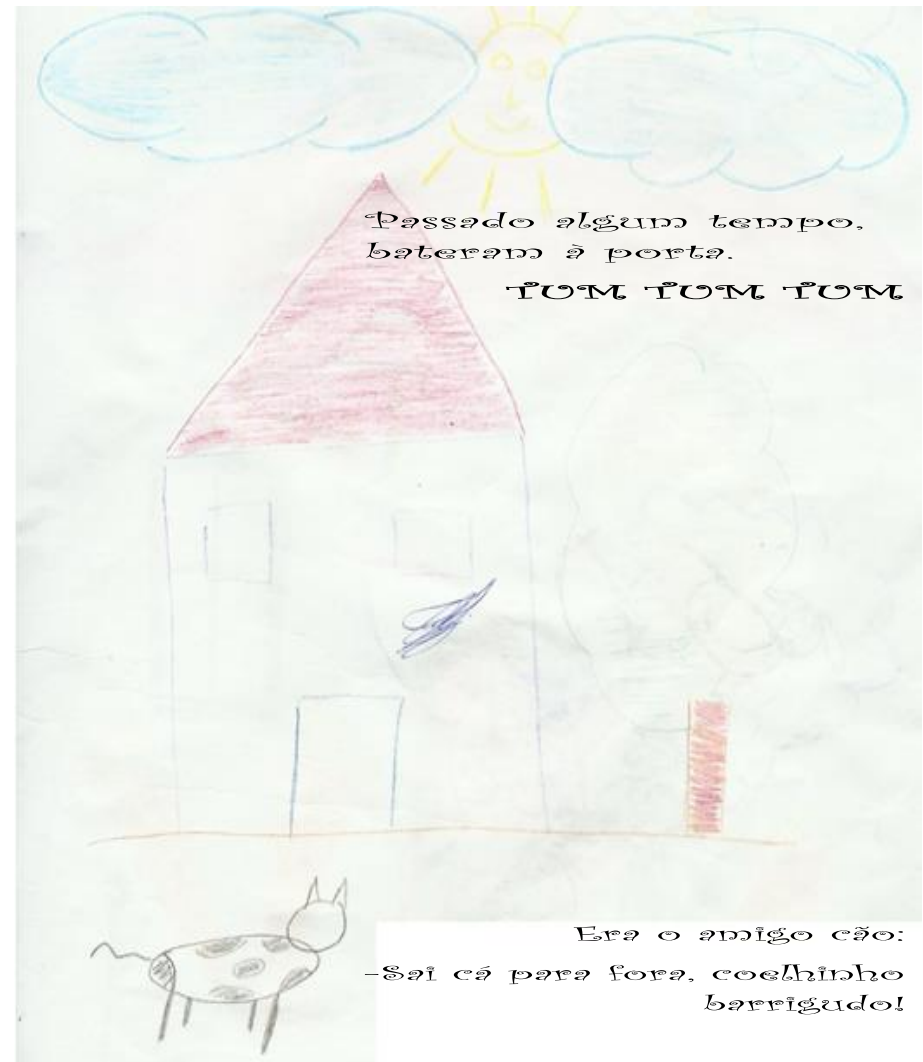 Passado algum tempo,
bateram à porta.
TUM TUM TUM
Era o amigo cão:
-Sai cá para fora, coelhinho
barrigudo!